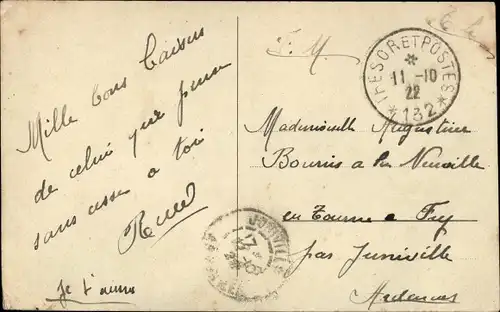 Mille bons baisers
de celui qui pense
sans cesse a toi
René
Je t'aime
F. M.
TRESOR ET POSTES
11-10
22
*132*
Mademoiselle Augustine
Bourris a la Neuville
en Tourne a Fuy
par Juniville
Ardennes
JUNIVILLE